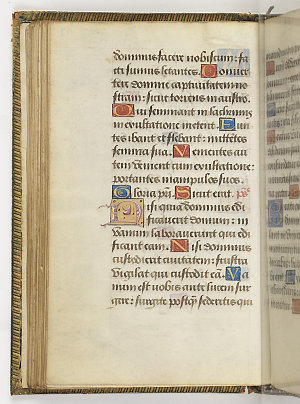 dominus facere nobiscum: fa
cti sumus letantes. Conuer
te domine captiuitatem no
stram: sicut torrens in austro.
Qui seminant in lachrimis
in exultatione metent. Eun
tes ibant et flebant: mittētes
semina sua. Venientes au
tem venient cum exultatione:
portantes manipulos suos.
Gloria pr̄i. Sicut erat. ps̄
Nisi quia dominus edi
ficauerit domum: in
vanum laborauerunt qui edi
ficant eam. Nisi dominus
custodierit ciuitatem: frustra
vigilat qui custodit eā. Va
num est vobis ante lucem sur
gere: surgite postq̄ sederitis qui